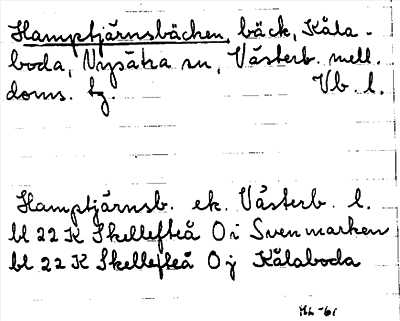 Hamptjärnsbäcken, bäck, Kåla-
boda, Nysätra sn, Västerb. mell.
doms. tg. Vb. l.
Hamptjärnsb. ek. Västerb. l.
bl 22 K Skellefteå O i Svenmarken
bl 22 K Skellefteå O j Kålaboda